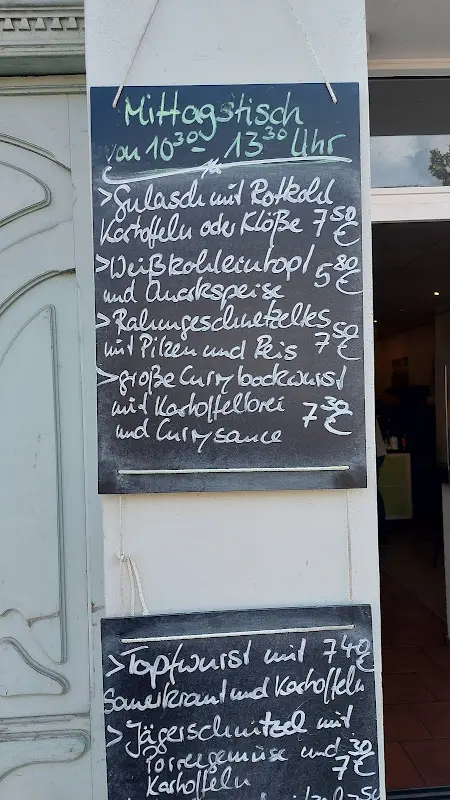 Mittagstisch
von 10³⁰ - 13³⁰ Uhr
> Gulasch mit Rotkohl
Kartoffeln oder Klöße 7⁵⁰ €
> Weißkohleintopf
und Quarkspeise 5⁸⁰ €
> Rahmgeschnetzeltes
mit Pilzen und Reis 7⁵⁰ €
> große Currybockwurst
mit Kartoffelbrei 7³⁰ €
und Currysauce
> Topfwurst mit 7⁴⁰ €
Sauerkraut und Kartoffeln
> Jägerschnitzel mit
Porreegemüse und 7³⁰ €
Kartoffeln